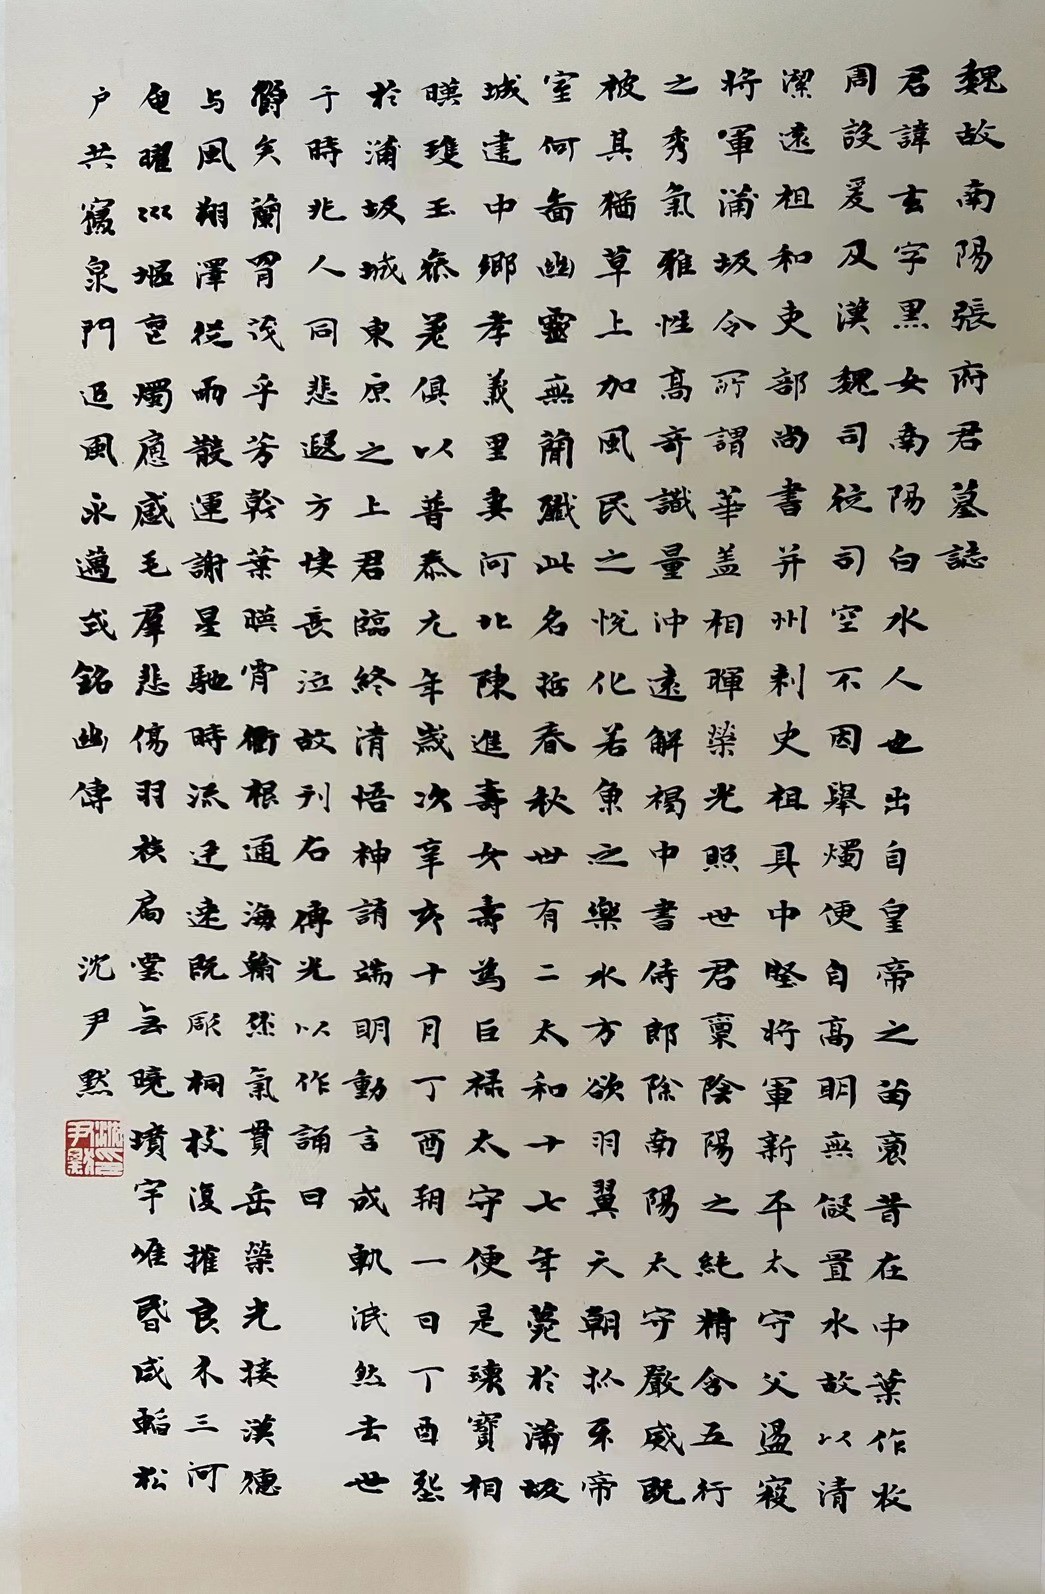 魏故南陽張府君墓誌
君諱玄字黑女南陽白水人也出自皇帝之苗裔昔在中葉作牧
周設爰及漢魏司徒司空不因舉燭便自高明無假置水故以清
潔遠祖和吏部尚書并州刺史祖具中堅將軍新平太守父盪寇
將軍蒲坂令所謂華蓋相暉榮光照世君稟陰陽之純精含五行
之秀氣雅性高奇識量沖遠解褐中書侍郎除南陽太守嚴威既
被其猶草上加風民之悅化若魚之樂水方欲羽翼天朝抓牙帝
室何啚幽靈無簡殲此名括春秋世有二太和十七年薨於蒲坂
城建中鄉孝義里妻河北陳進壽女壽為巨祿太守便是瑓寶相
暎瓊玉參差俱以普泰九年歲次辛亥十月丁酉朔一日丁酉丞
於蒲坂城東原之上君臨終清悟神誚端明動言成軌泯然去世
于時兆人同悲遐方悽長泣故刊石傳光以作誦曰
爵矣蘭胃茂乎芳幹葉暎霄衢根通海翰氣貫岳榮光接漢德
与風翔澤從雨散運謝星馳時流迅速既彫桐枝復摧良木三河
奄曜巛堰罷燭應感毛群悲傷羽族扃堂無曉墳宇唯昏咸輼松
户共寢泉門追風永邁式銘幽傳
沈尹默
沈尹默印